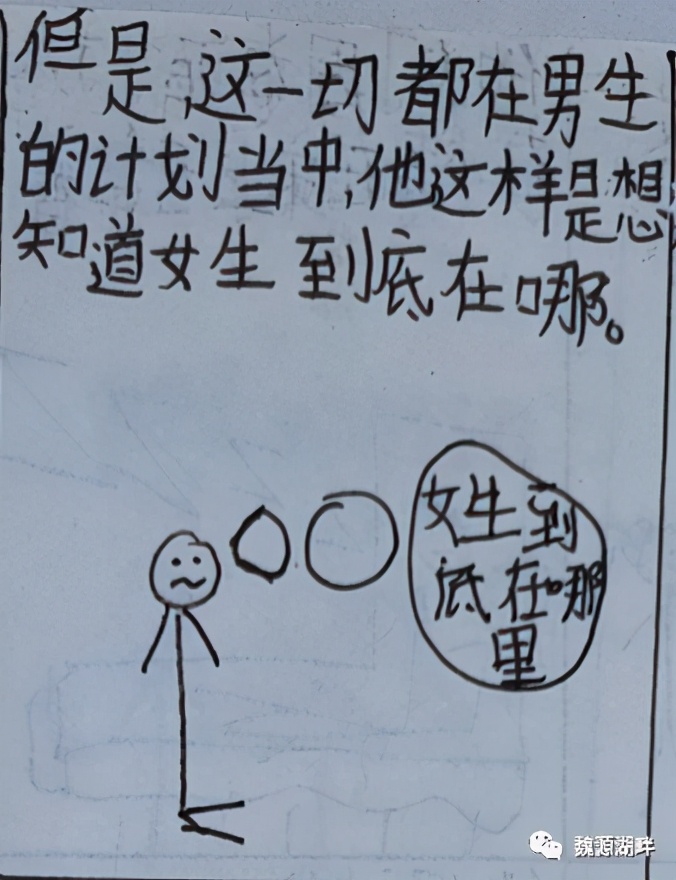 但是,这一切都在男生
的计划当中,他这样是想
知道女生到底在哪。
女生到
底在哪
里
魏源湖畔